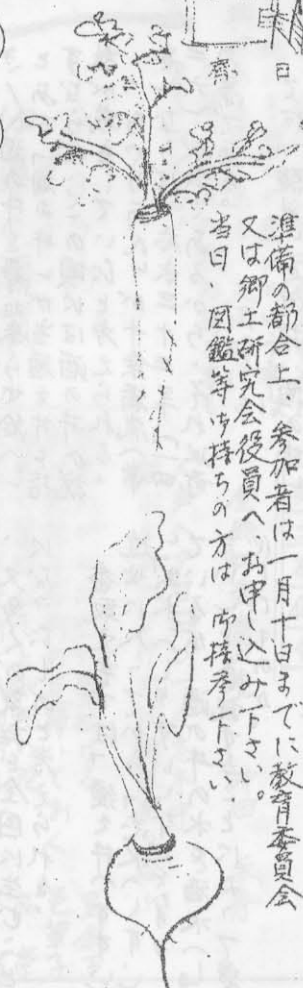 日
齋
準備の都合上、参加者は一月十日までに教育委員会
又は郷土研究会役員へお申し込み下さい。
当日、図鑑等お持ちの方は御持参下さい。